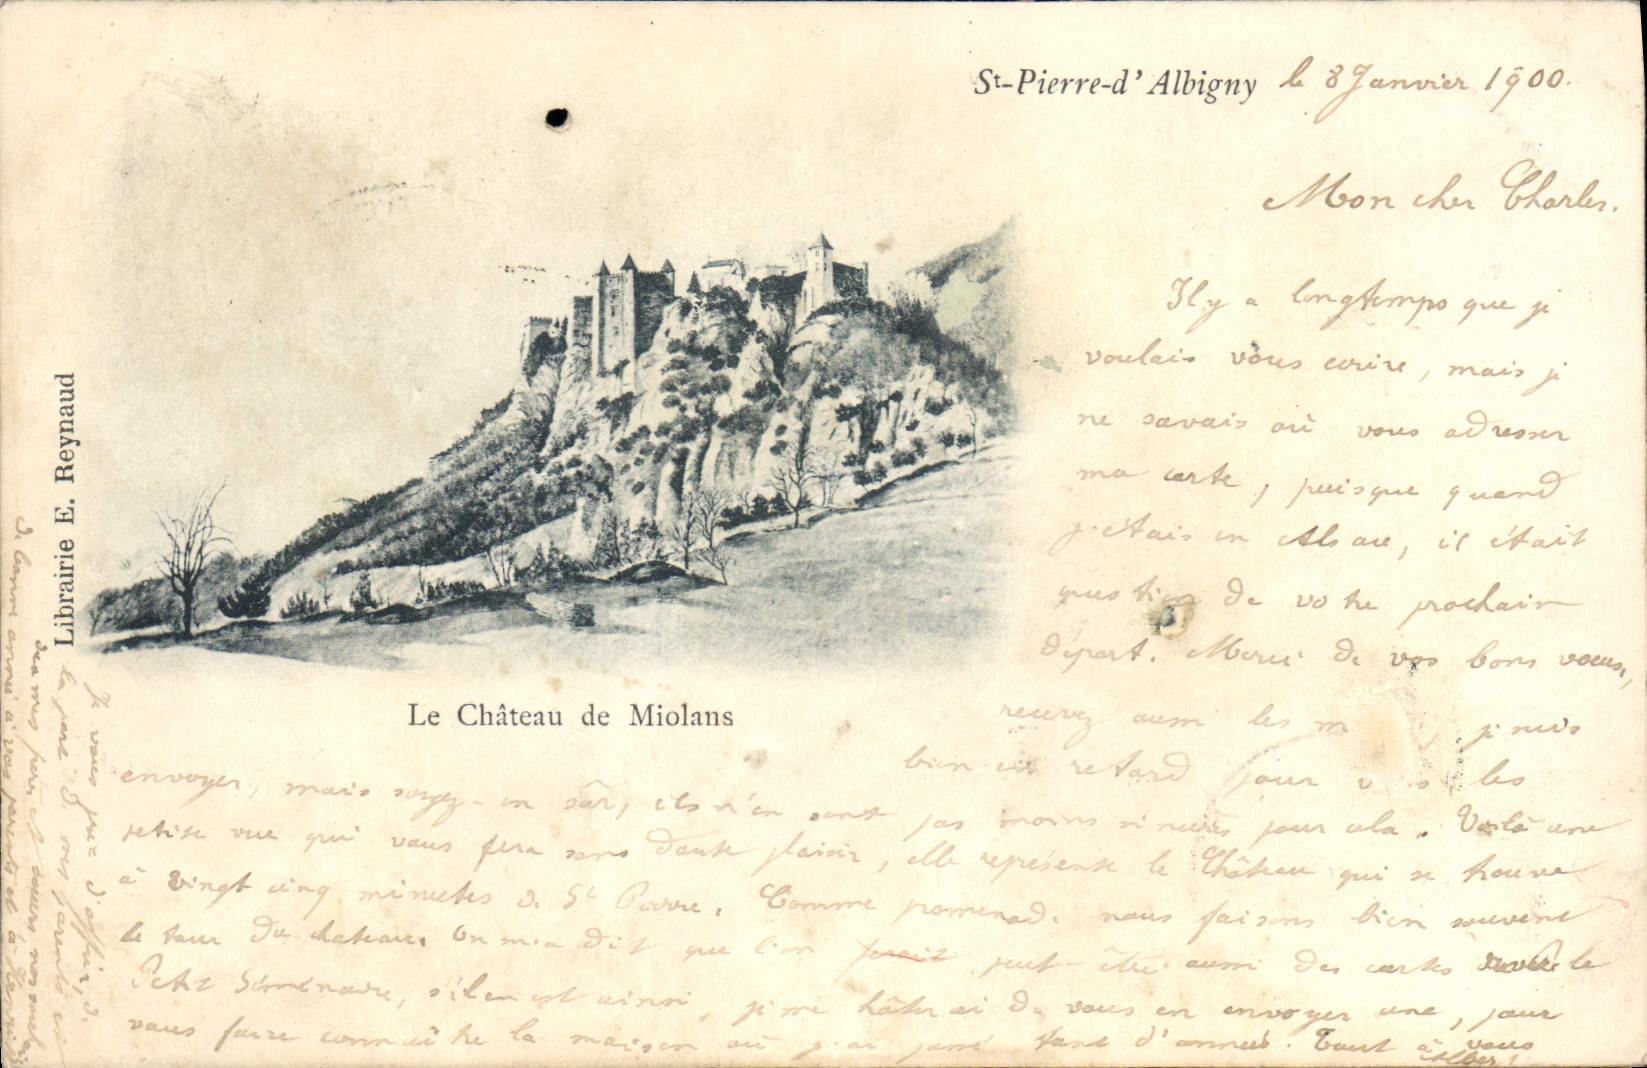 St-Pierre-d'Albigny le 8 Janvier 1900.
Mon cher Charles.
Il y a longtemps que je
voulais vous ecrire, mais je
ne savais où vous adresser
ma carte, puisque quand
j'étais en Alsace, il était
question de votre prochain
départ. Merci de vos bons vœux,
recevez aussi les m , je suis
bien en retard pour v s les
envoyer, mais soyez-en sûr, ils n'en sont pas moins sincères pour cela. Voilà une
petite vue qui vous fera sans doute plaisir, elle représente le Château qui se trouve
à vingt cinq minutes de St Pierre. Comme promenade nous faisons bien souvent
le tour du chateau. On m'a dit que l'on ferait peut-être aussi des cartes avec le
Petit Séminaire, s'il en est ainsi, je me hâterai de vous en envoyer une, pour
vous faire connaître la maison où j'ai passé tant d'années. Tout à vous
Albert
Le Château de Miolans
Librairie E. Reynaud
Je vous prie d'offrir, de
la part de mes parents et
de mes frères et sœurs, nos meil
de bonne année à vos parents et à